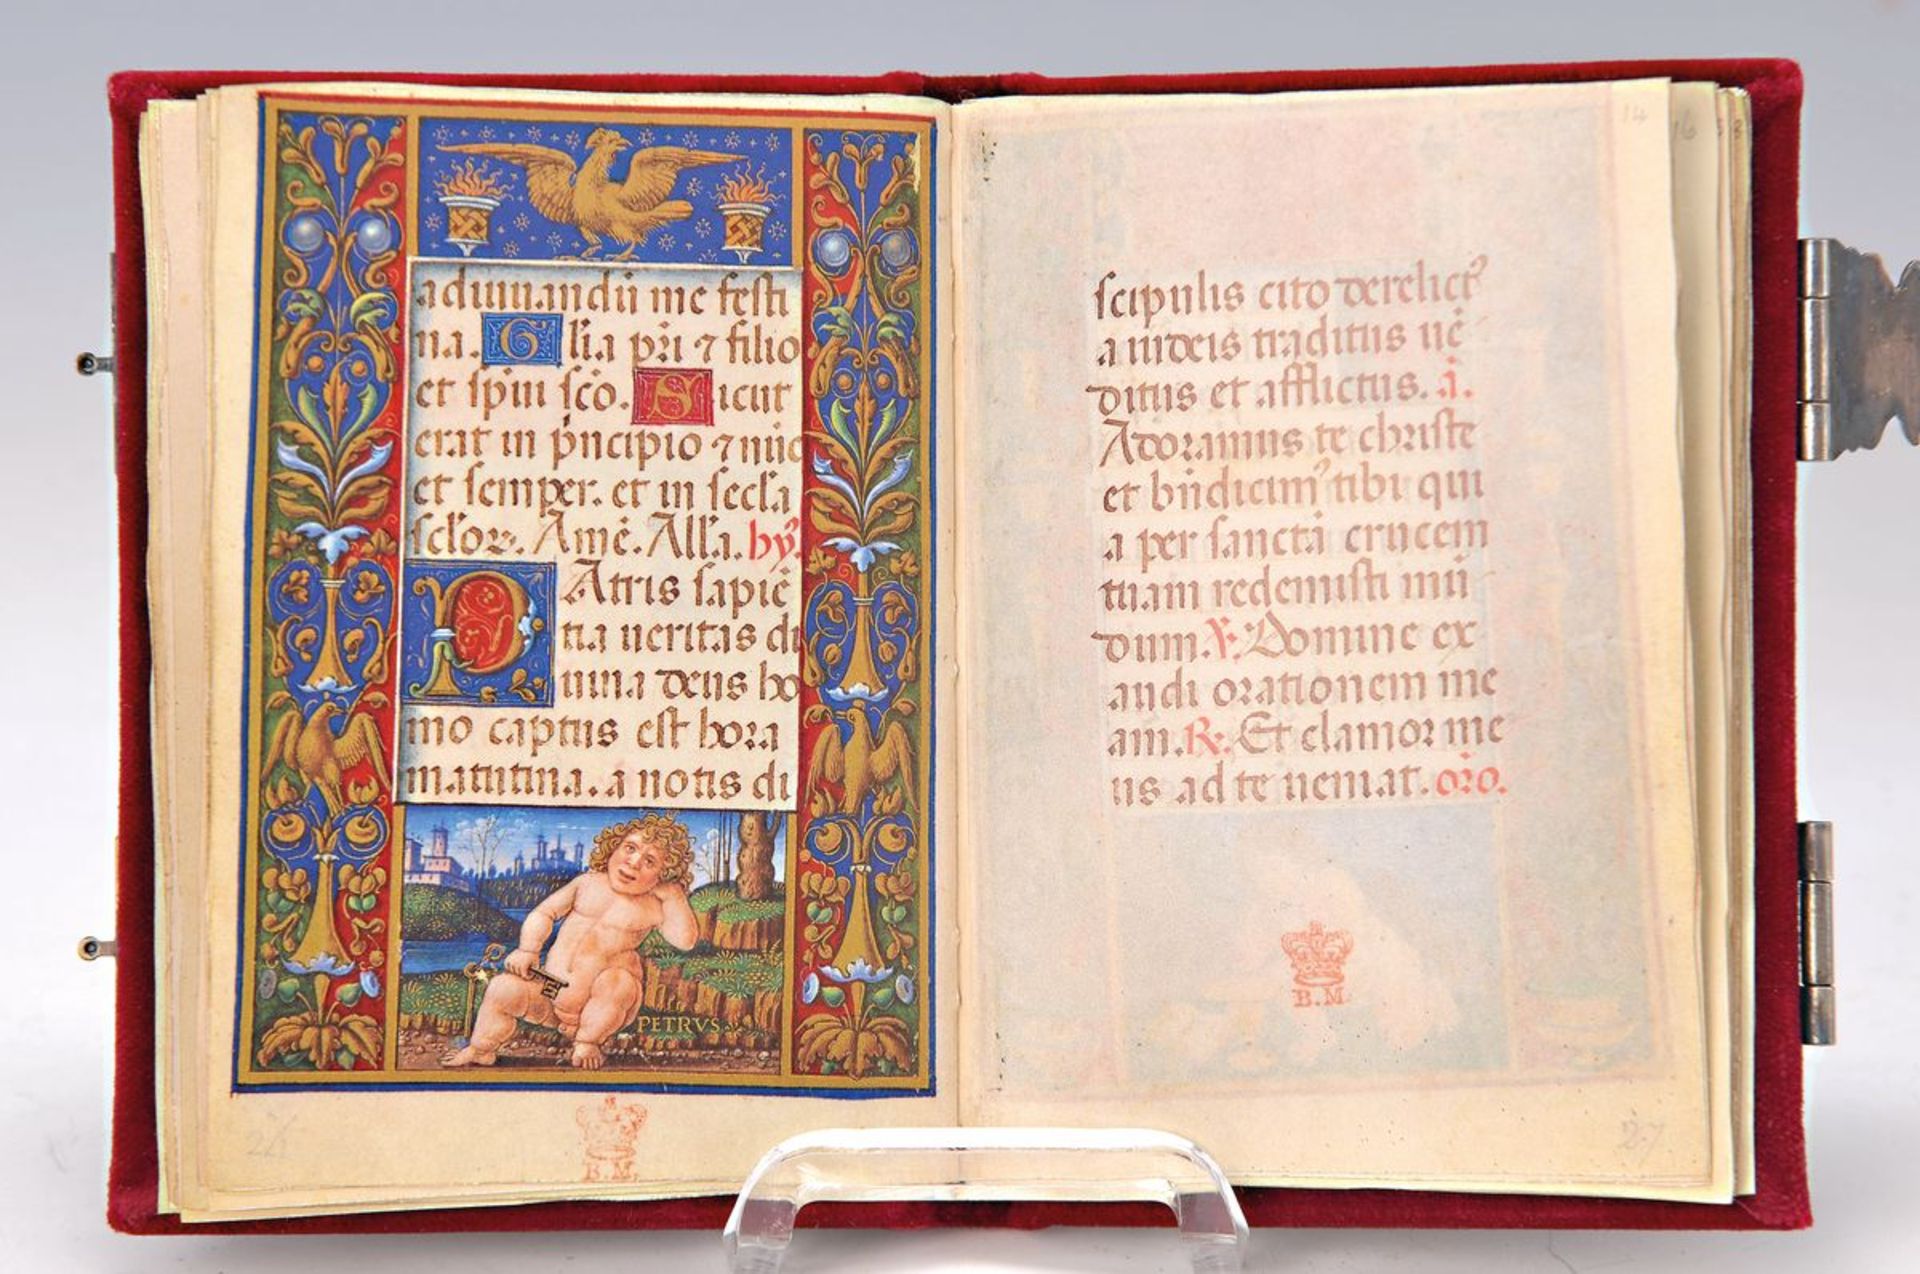 adiuuandū me festi
na. Glīa pr̄i ⁊ filio
et spīui sc̄o. Sicut
erat in pͥncipio ⁊ nūc
et semper. et in secl̄a
scl̄oꝝ. Amē. All̄a. hy᷒.
PAtris sapiē
tia ueritas di
uina deus ho
mo captus est hora
matutina. a notis di
PETRVS
B.M.
scipulis cito derelict᷒
a iudeis traditus uē
ditus et afflictus. ā.
Adoramus te christe
et bn̄dicim᷒ tibi qui
a per sanctā crucem
tuam redemisti mū
dum. ℣. Domine ex
audi orationem me
am. ℟. Et clamor me
us ad te ueniat. or̄o.
B.M.
27
14
16